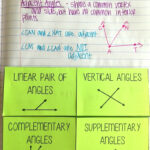 Adjacent Angles - share a common vertex
and side, but have no common interior
points.
are adjacent
are NOT
adjacent
LINEAR PAIR OF
ANGLES
VERTICAL ANGLES
COMPLEMENTARY
ANGLES
SUPPLEMENTARY
ANGLES